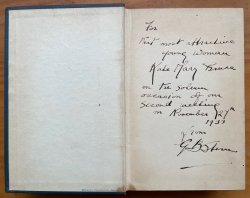 For
that most attractive
young woman
Kate Mary Bruce
on the solemn
occasion of our
second wedding
on November 27th
1937
from